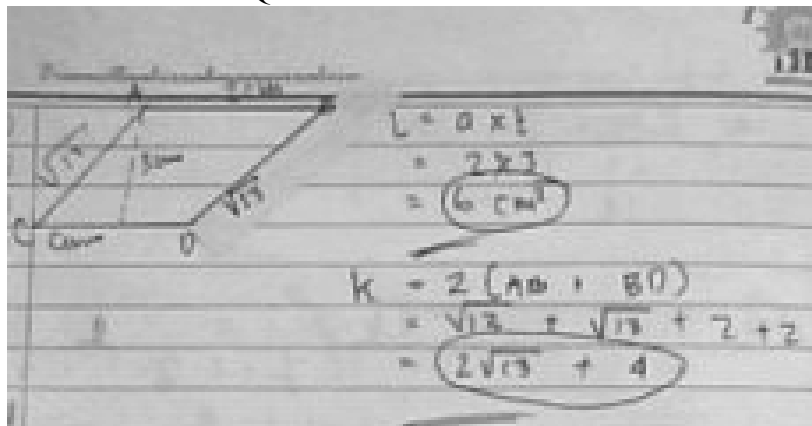 A
B
√13
3cm
√13
C
D
L = a x t
= 2 x 3
= 6 cm²
K = 2 (AB + BD)
= √13 + √13 + 2 + 2
= 2√13 + 4